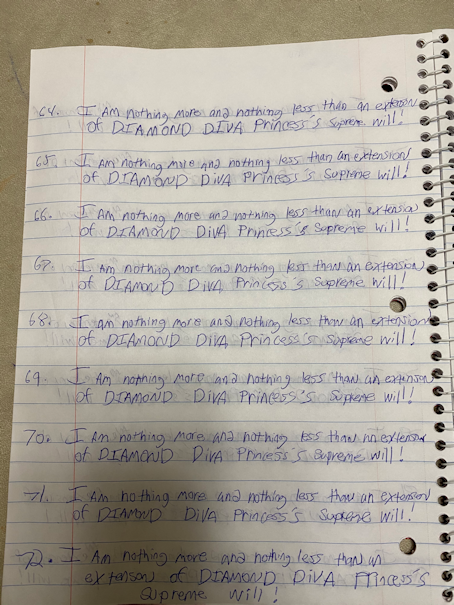 64. I Am nothing more and nothing less than an extension
of DIAMOND DIVA Princess's Supreme will!
65. I Am nothing more and nothing less than an extension
of DIAMOND DiVA Princess's Supreme will!
66. I Am nothing more and nothing less than an extension
of DIAMOND DiVA Princess's Supreme will!
67. I Am nothing more and nothing less than an extension
of DIAMOND DiVA Princess's Supreme will!
68. I Am nothing more and nothing less than an extension
of DIAMOND DIVA Princess's Supreme will!
69. I Am nothing more and nothing less than an extension
of DIAMOND DIVA Princess's Supreme will!
70. I Am nothing more and nothing less than no extension
of DIAMOND DiVA Princess's Supreme will!
71. I Am nothing more and nothing less than an extension
of DIAMOND DIVA Princess's Supreme will!
72. I Am nothing more and nothing less than an
extenson of DIAMOND DIVA Princess's
Supreme will!